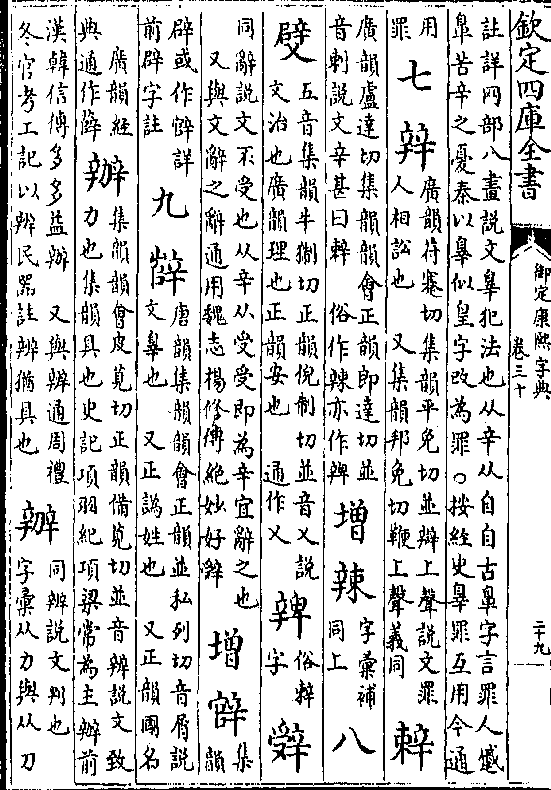 欽定四庫全書
御定康熙字典
卷三十
二十九
註詳网部八畫説文辠犯法也从辛从自自古鼻字言罪人慼
鼻苦辛之憂秦以辠似皇字改為罪○按經史辠罪互用今通
用
罪
七
辡
廣韻符蹇切集韻平免切並辯上聲説文罪
人相訟也 又集韻邦免切鞭上聲義同
辢
廣韻盧達切集韻韻會正韻即達切並
音剌説文辛甚曰辢 俗作辣亦作䢃
增
辣
字彙補
同上
八
五音集韻牛猘切正韻倪制切並音乂説
文治也廣韻理也正韻安也 通作乂
俗辢
字
辤
同辭説文不受也从辛从受受即為辛宜辭之也
又與文辭之辭通用魏志楊修傳絶妙好辤
增
集
韻
辟或作
詳
前辟字註
九
辥
唐韻集韻韻會正韻並私列切音屑説
文辠也 又正譌姓也 又正韻國名
廣韻經
典通作
辦
集韻韻會皮莧切正韻備莧切並音辨説文致
力也集韻具也史記項羽紀項梁常為主辦前
漢韓信傳多多益辦 又與辨通周禮
冬官考工記以辨民器註辨猶具也
辧
同辨説文判也
字彙从力與从刀